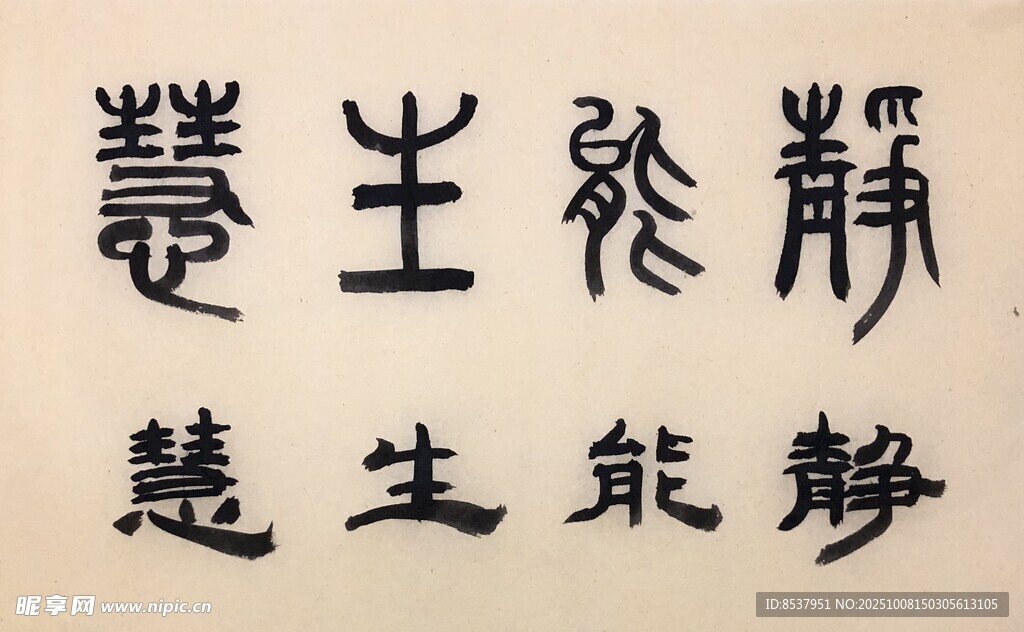 静能生慧
静能生慧
昵享网 www.nipic.cn
ID:8537951 NO:20251008150305613105